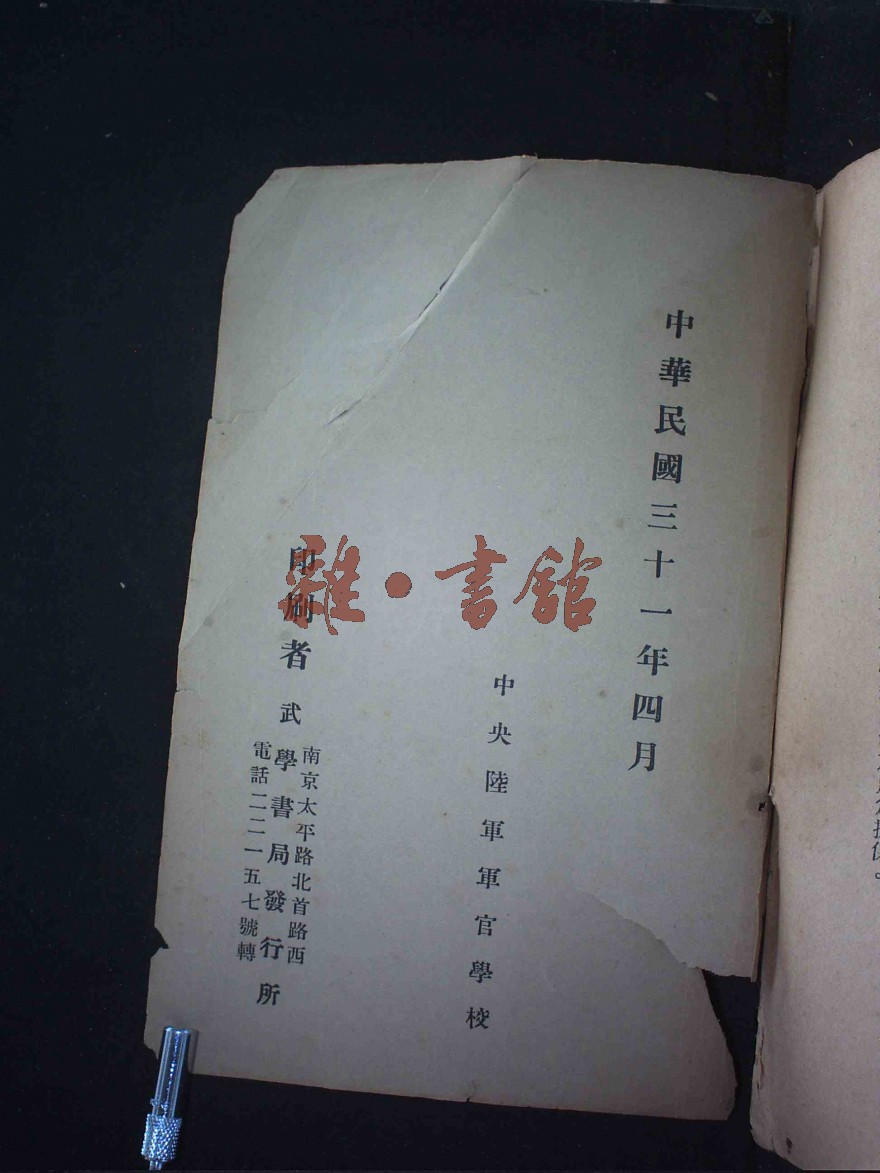 中華民國三十一年四月
中央陸軍軍官學校
印刷者
武學書局發行所
南京太平路北首路西
電話二二一五七號轉
雜·書館